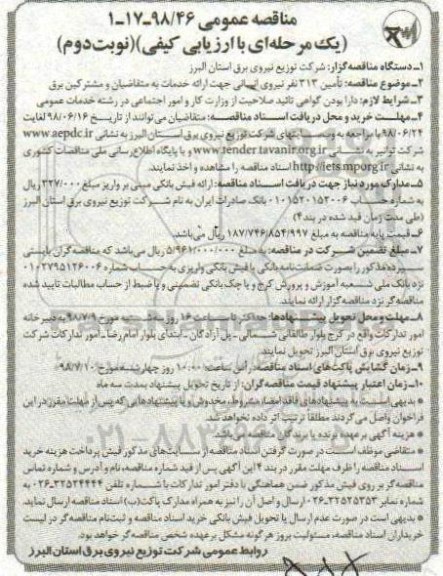 مناقصه عمومی ۹۸/۴۶-۱۷-۱
(یک مرحله‌ای با ارزیابی کیفی)(نوبت دوم)
۱- دستگاه مناقصه‌گزار: شرکت توزیع نیروی برق استان البرز
۲- موضوع مناقصه: تأمین ۳۱۳ نفر نیروی انسانی جهت ارائه خدمات به متقاضیان و مشترکین برق
۳- شرایط لازم: دارا بودن گواهی تائید صلاحیت از وزارت کار و امور اجتماعی در رشته خدمات عمومی
۴- مهلت خرید و محل دریافت اسناد مناقصه: متقاضیان می‌توانند از تاریخ ۹۸/۰۶/۱۶ لغایت
۹۸/۰۶/۲۴ با مراجعه به وب سایتهای شرکت توزیع نیروی برق استان البرز به نشانی www.aepdc.ir
شرکت توانیر به نشانی www.tender.tavanir.org.ir و یا پایگاه اطلاع رسانی ملی مناقصات کشوری
به نشانی http://iets.mporg.ir اسناد مناقصه را مشاهده و اخذ نمایند.
۵- مدارک مورد نیاز جهت دریافت اسناد مناقصه: ارائه فیش بانکی مبنی بر واریز مبلغ ۳۲۷/۰۰۰ ریال
به شماره حساب ۰۱۰۱۵۲۰۱۵۲۰۰۶ بانک صادرات ایران به نام شرکت توزیع نیروی برق استان البرز
(طی مدت زمان قید شده در بند ۴)
۶- قیمت پایه مناقصه به مبلغ ۱۸۷/۷۴۶/۸۵۴/۹۹۷ ریال می‌باشد.
۷- مبلغ تضمین شرکت در مناقصه: به مبلغ ۵/۹۶۱/۰۰۰/۰۰۰ ریال می‌باشد که مناقصه گران بایستی
سپرده مذکور را بصورت ضمانت‌نامه بانکی یا فیش بانکی واریزی به حساب شماره ۰۱۰۲۷۹۵۱۲۶۰۰۶
نزد بانک ملی شعبه آموزش و پرورش کرج و یا چک بانکی تضمینی و یا ضبط از حساب مطالبات تایید شده
مناقصه‌گر نزد مناقصه گزار ارائه نمایند.
۸- مهلت و محل تحویل پیشنهادها: حداکثر تا ساعت ۱۶ روز سه شنبه مورخ ۹۸/۷/۹ به دبیرخانه
امور تدارکات واقع در کرج بلوار طالقانی شمالی- پل آزادگان - ابتدای بلوار امام رضا- امور تدارکات شرکت
توزیع نیروی برق استان البرز تحویل نمایند
۹- زمان گشایش پاکت‌های اسناد مناقصه: رأس ساعت ۱۰:۰۰ روز چهارشنبه مورخ ۹۸/۷/۱۰
۱۰- زمان اعتبار پیشنهاد قیمت مناقصه گران: از تاریخ تحویل پیشنهاد بمدت سه ماه
* بدیهی است به پیشنهادهای فاقد امضاء، مشروط، مخدوش و یا پیشنهادهایی که پس از مهلت مقرر در این
فراخوان واصل می گردند مطلقا ترتیب اثر داده نخواهد شد.
* هزینه آگهی بر عهده برنده یا برندگان مناقصه می‌باشد.
* متقاضی موظف است در صورت گرفتن اسناد مناقصه از سایت‌های مذکور فیش پرداخت هزینه خرید
اسناد مناقصه را ظرف مهلت مقرر در بند ۴ این آگهی پس از قید شماره مناقصه، نام و آدرس و شماره تماس
مناقصه گر بر روی فیش مذکور ضمن هماهنگی با دفتر امور تدارکات با شماره تلفن ۳۲۵۲۴۴۴۴-۰۲۶ به
شماره نمابر ۳۲۵۲۵۳۵۳-۰۲۶ ارسال و اصل آن را نیز به همراه مدارک پاکت (ب) اسناد مناقصه ارسال نماید.
* بدیهی است در صورت عدم ارسال یا تحویل فیش بانکی خرید اسناد مناقصه و ثبت‌نام مناقصه گر در لیست
خریداران اسناد مناقصه، مسئولیت بروز هر گونه مشکل بر عهده شخص مناقصه گر خواهد بود.
روابط عمومی شرکت توزیع نیروی برق استان البرز